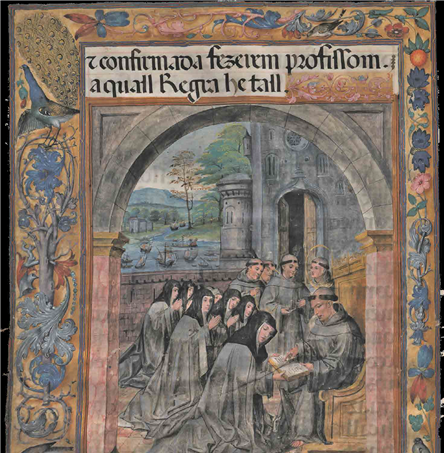 ⁊ confirmada fezerem profissom.
a quall Regra he tall.